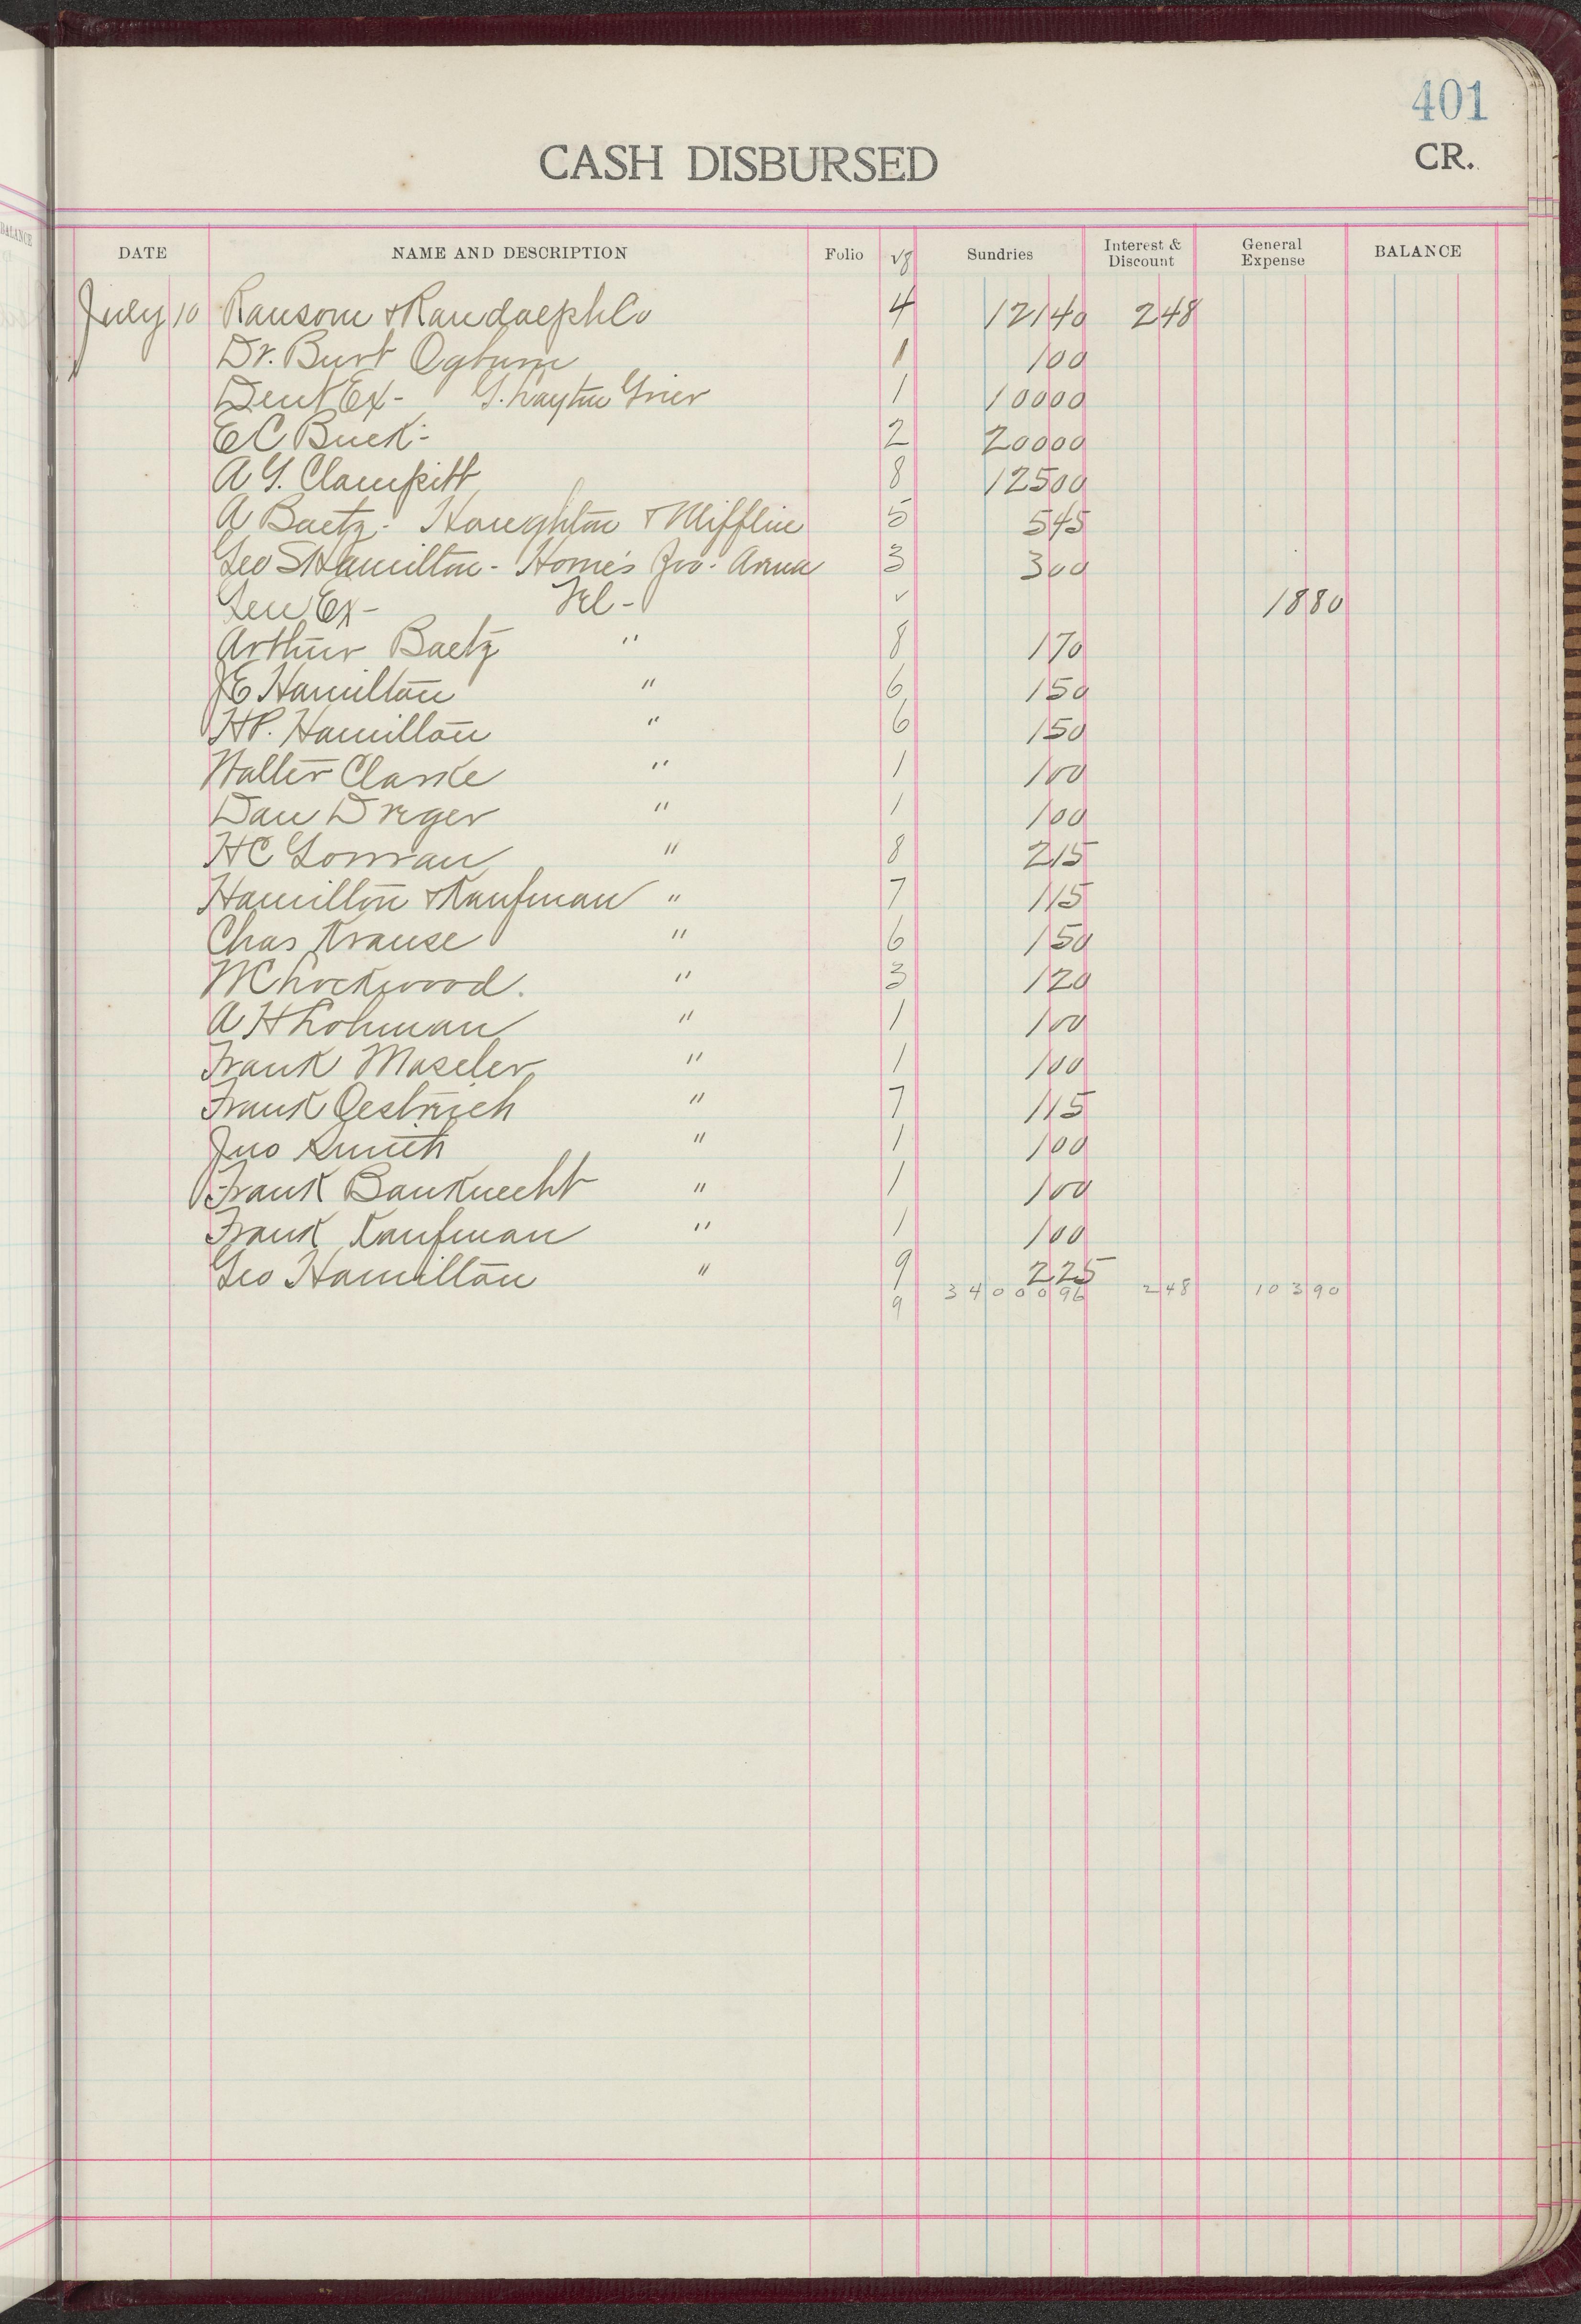 401
CASH DISBURSED CR.
BALANCE
DATE NAME AND DESCRIPTION Folio Sundries Interest & Discount General Expense BALANCE
July 10 Ransom & Randolph Co 4 121 40 2 48
Dr. Burt Ogburn 1 1 00
Dent Ex - G. Layton Grier 1 100 00
E C Buck - 2 200 00
A G. Clampitt 8 125 00
A Baetz - Houghton & Mifflin 5 5 45
Geo S Hamilton - Horne's 3 3 00
Gen Ex - Tel - ✓ 18 80
Arthur Baetz " 8 1 70
J E Hamilton " 6 1 50
H P. Hamilton " 6 1 50
Walter Clarke " 1 1 00
Dan Dreger " 1 1 00
H C " 8 2 15
Hamilton & Kaufman " 7 1 15
Chas Krause " 6 1 50
W C Lockwood. " 3 1 20
A H Lohman " 1 1 00
Frank Maseler " 1 1 00
Frank Oestrich " 7 1 15
Jno Smith " 1 1 00
Frank Bauknecht " 1 1 00
Frank Kaufman " 1 1 00
Geo Hamilton " 9 2 25
9 34000 96 2 48 103 90